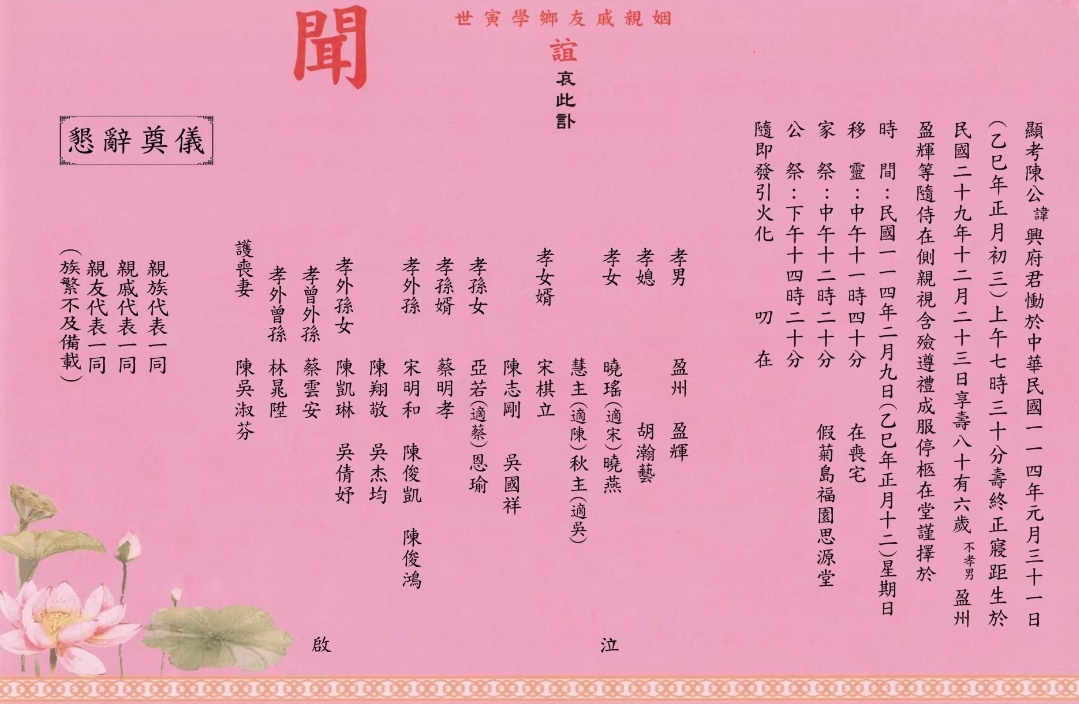 顯考陳公諱興府君慟於中華民國一一四年元月三十一日
(乙巳年正月初三)上午七時三十分壽終正寢距生於
民國二十九年十二月二十三日享壽八十有六歲 不孝男 盈州
盈輝等隨侍在側親視含殮遵禮成服停柩在堂謹擇於
時 間:民國一一四年二月九日(乙巳年正月十二)星期日
移 靈:中午十一時四十分 在喪宅
家 祭:中午十二時二十分 假菊島福園思源堂
公 祭:下午十四時二十分
隨即發引火化 叨 在
姻親戚友鄉學寅世
誼 哀此訃
聞
孝男 盈州 盈輝
孝媳 胡瀚藝
孝女 曉瑤(適宋)曉燕
慧主(適陳)秋主(適吳)
孝女婿 宋棋立
陳志剛 吳國祥
孝孫女 亞若(適蔡)恩瑜
孝孫婿 蔡明孝
孝外孫 宋明和 陳俊凱 陳俊鴻
陳翔敬 吳杰均
孝外孫女 陳凱琳 吳倩妤
孝曾外孫 蔡雲安
孝外曾孫 林晁陞
護喪妻 陳吳淑芬
泣
啟
親族代表一同
親戚代表一同
親友代表一同
(族繁不及備載)
懇辭奠儀